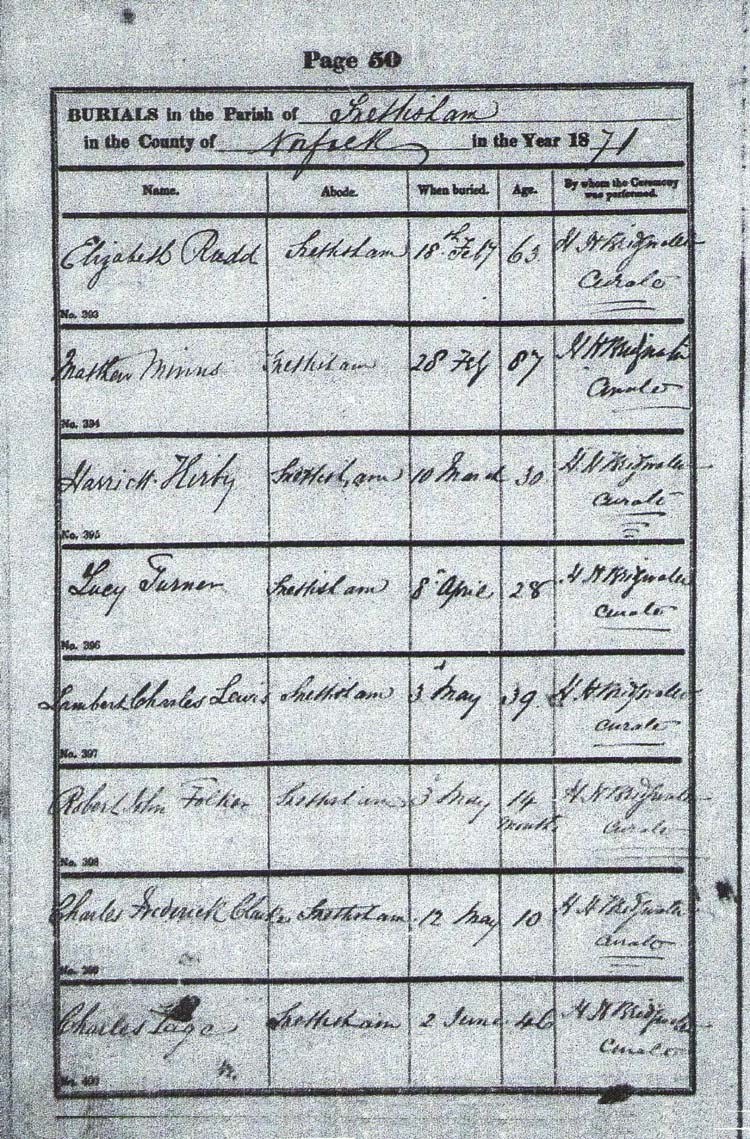 Page 50
BURIALS in the Parish of Snettisham
in the County of Norfolk in the Year 1871
Name. Abode. When buried. Age. By whom the Ceremony was performed.
Elizabeth Rudd Snettisham 18th Feby 63 H H Bridgwater
Curate
No. 393
Matthew Minns Snettisham 28 Feby 87 H H Bridgwater
Curate
No. 394
Harriett Kirby Snettisham 10 March 30 H H Bridgwater
Curate
No. 395
Lucy Turner Snettisham 8th April 28 H H Bridgwater
Curate
No. 396
Lambert Charles Lewis Snettisham 3d May 39 H H Bridgwater
Curate
No. 397
Robert John Folker Snettisham 3d May 14 months H H Bridgwater
Curate
No. 398
Charles Frederick Clarke Snettisham 12 May 10 H H Bridgwater
Curate
No. 399
Charles Page Snettisham 2 June 46 H H Bridgwater
Curate
No. 400